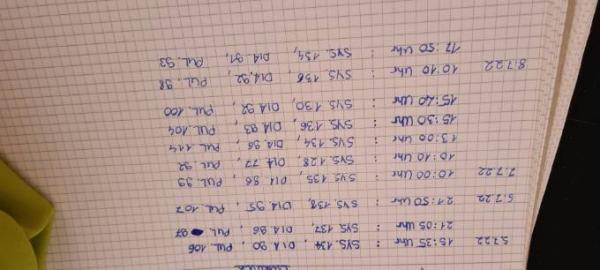 5.7.22 15:35 Uhr : SYS. 134, DIA 90, PUL 106
21:05 Uhr : SYS. 137, DIA 86, PUL. 97
6.7.22 21:50 Uhr : SYS. 138, DIA 95, PUL. 107
7.7.22 10:00 Uhr : SYS. 135, DIA 86, PUL 99
10:10 Uhr : SYS. 128, DIA 77, PUL. 92
13:00 Uhr : SYS. 134, DIA 96, PUL 114
15:30 Uhr : SYS. 136, DIA 93, PUL. 104
15:40 Uhr : SYS. 130, DIA 92, PUL. 100
8.7.22 10:10 Uhr : SYS 136, DIA. 92, PUL. 98
17:50 Uhr : SYS. 134, DIA 91, PUL. 93